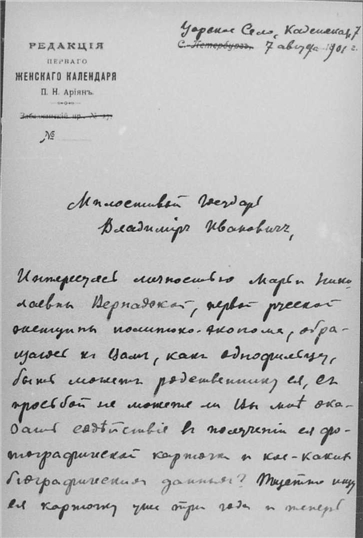 Царское Село, Кадетская, 7
С.-Петербургъ. 7 августа 1901 г.
РЕДАКЦІЯ
ПЕРВАГО
ЖЕНСКАГО КАЛЕНДАРЯ
П. Н. Аріянъ.
№
Милостивый Государь
Владиміръ Ивановичъ,
Интересуясь личностью Марьи Нико
лаевны Вернадской, первой русской
женщины политико-эконома, обра-
щаюсь къ Вамъ, какъ однофамильцу,
быть можетъ родственнику ея, съ
просьбой не можете ли Вы мнѣ ока-
зать содѣйствіе въ полученіи ея фо-
тографической карточки и кое-какихъ
біографическихъ данныхъ? Тщетно ищу
ея карточку уже три года и теперь